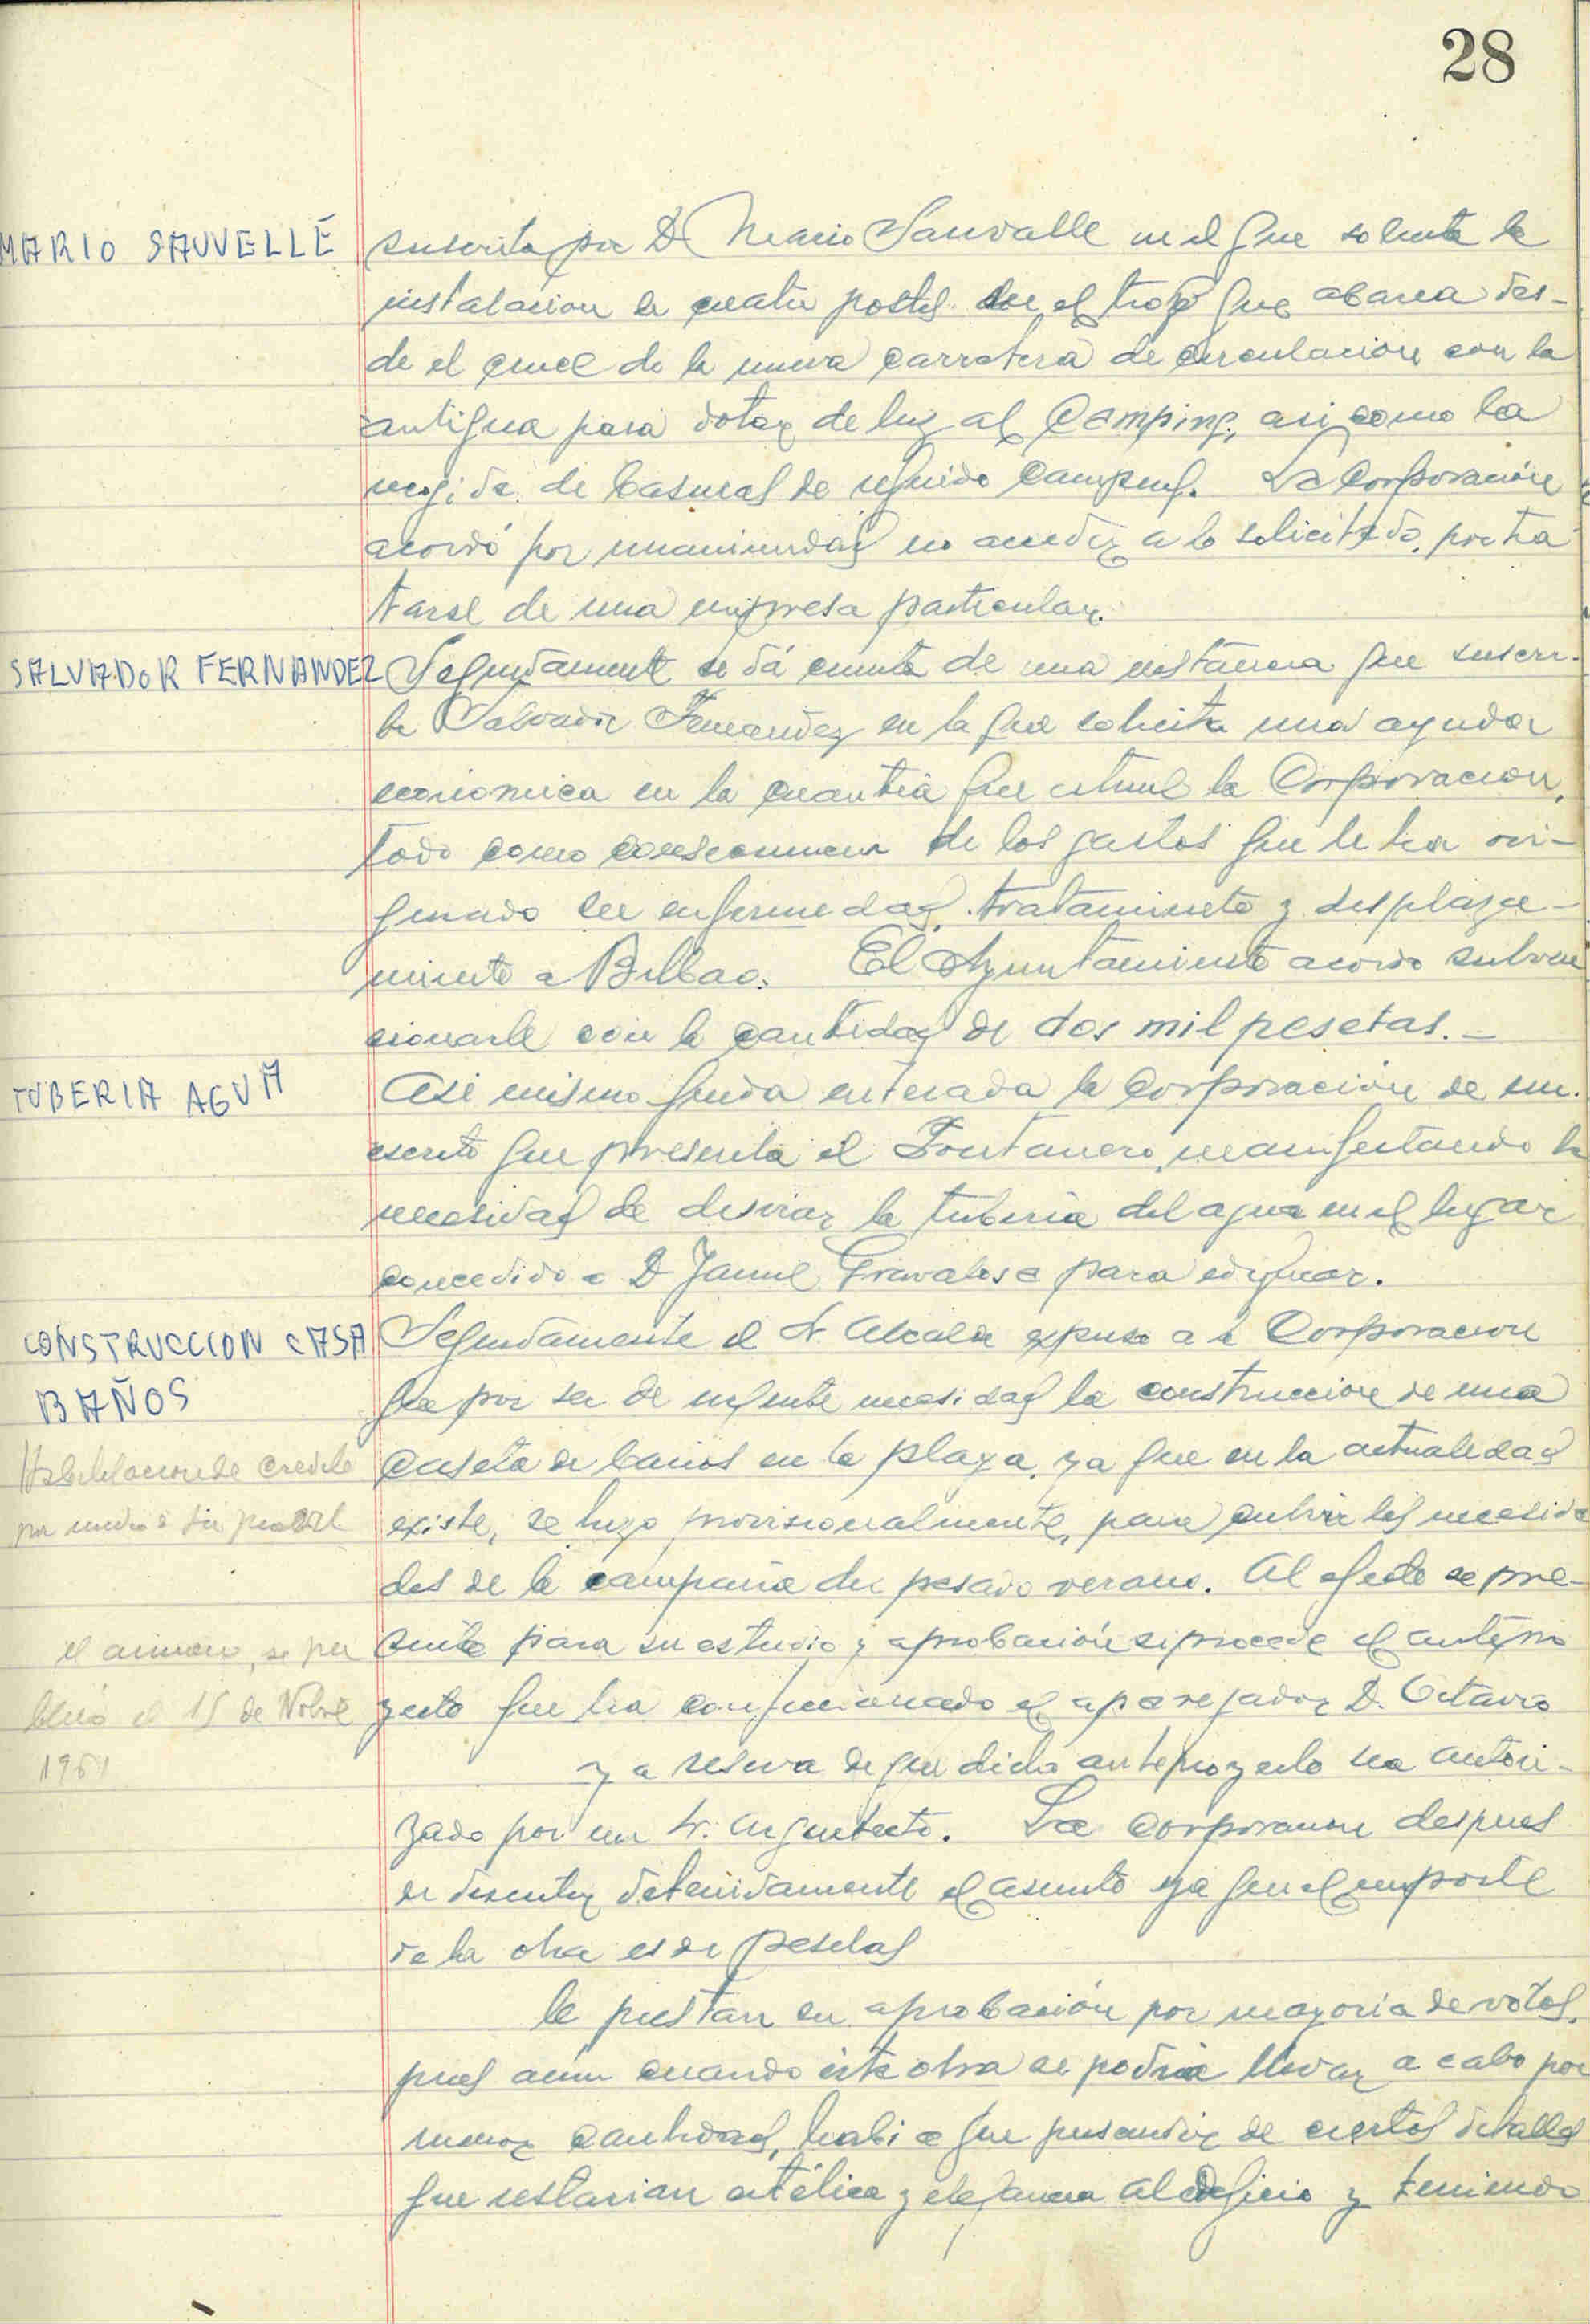 28
MARIO SAUVELLE
suscrita por D Mario Sauvalle en el que solicita la
instalacion de cuatro postes en el trozo que abarca des-
de el cruce de la nueva carretera de circulacion con la
antigua para dotar de luz al Camping, asi como la
recogida de basuras de referido Camping. La Corporación
acordó por unanimidad no acceder a lo solicitado, por tra
tarse de una empresa particular.
SALVADOR FERNANDEZ
Seguidamente se dá cuenta de una instancia que suscri-
be Salvador Fernandez en la que solicita una ayuda
economica en la cuantia que estime la Corporacion,
todo como consecuencia de los gastos que le ha ori-
ginado su enfermedad, tratamiento y desplaza-
miento a Bilbao. El Ayuntamiento acordo subven
cionarle con la cantidad de dos mil pesetas.-
TUBERIA AGUA
Asi mismo queda enterada la Corporación de un
escrito que presenta el Fontanero, manifestando la
necesidad de desviar la tuberia del agua en el lugar
concedido a D Jaime para edificar.
CONSTRUCCION CASA
BAÑOS
Habilitacion de credito
por medio de
el anuncio, se pu
blicó el 15 de Nobre
1961
Seguidamente el Sr. Alcalde expuso a la Corporacion
que por ser de urgente necesidad la construccion de una
caseta de baños en la playa, ya que en la actualidad
existe, se hizo provisionalmente, para cubrir las necesida
des de la campaña del pasado verano. Al efecto se pre-
senta para su estudio y aprobación si procede el antepro
yecto que ha confeccionado el aparejador D. Octavio
y a reserva de que dicho anteproyecto sea autori-
zado por un Sr. Arquitecto. La Corporacion despues
de discutir detenidamente el asunto ya que el importe
de la obra es de pesetas
le prestan su aprobación por mayoria de votos,
pues aun cuando esta obra se podria llevar a cabo por
menor cantidad, habia que prescindir de ciertos detalles
que restarian estética y elegancia al edificio y teniendo